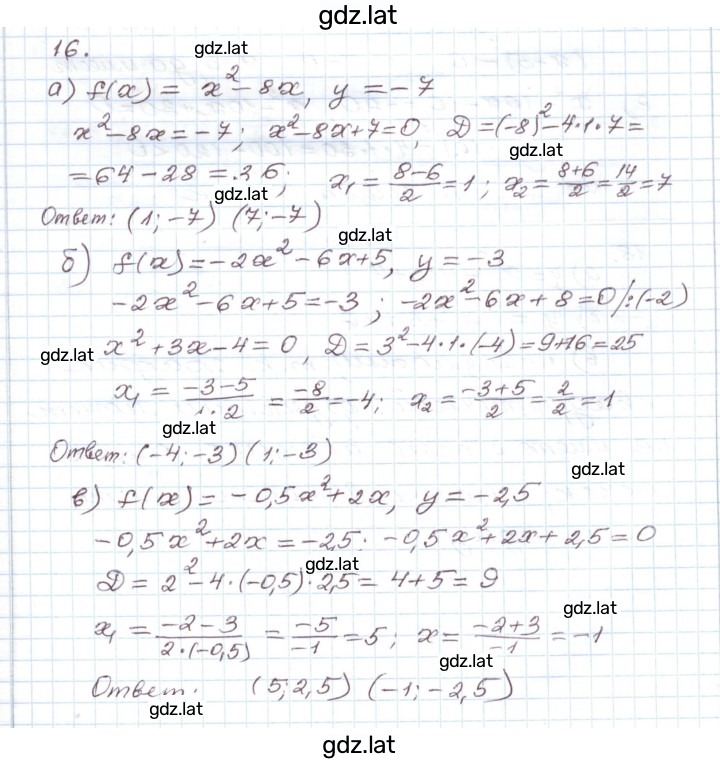 gdz.lat
16.
gdz.lat
а) f(x) = x² - 8x, y = -7
x² - 8x = -7; x² - 8x + 7 = 0, D = (-8)² - 4·1·7 =
gdz.lat
= 64 - 28 = 36; x₁ = (8-6)/2 = 1; x₂ = (8+6)/2 = 14/2 = 7
gdz.lat
Ответ: (1; -7) (7; -7)
gdz.lat
б) f(x) = -2x² - 6x + 5, y = -3
-2x² - 6x + 5 = -3; -2x² - 6x + 8 = 0 /:(-2)
gdz.lat x² + 3x - 4 = 0, D = 3² - 4·1·(-4) = 9 + 16 = 25
x₁ = (-3-5)/(1·2) = -8/2 = -4; x₂ = (-3+5)/2 = 2/2 = 1
gdz.lat
Ответ: (-4; -3) (1; -3)
gdz.lat
в) f(x) = -0,5x² + 2x, y = -2,5
-0,5x² + 2x = -2,5. -0,5x² + 2x + 2,5 = 0
gdz.lat
D = 2² - 4·(-0,5)·2,5 = 4 + 5 = 9
gdz.lat
x₁ = (-2-3)/(2·(-0,5)) = -5/-1 = 5; x = (-2+3)/-1 = -1
gdz.lat
Ответ. (5; 2,5) (-1; -2,5)
gdz.lat
gdz.lat